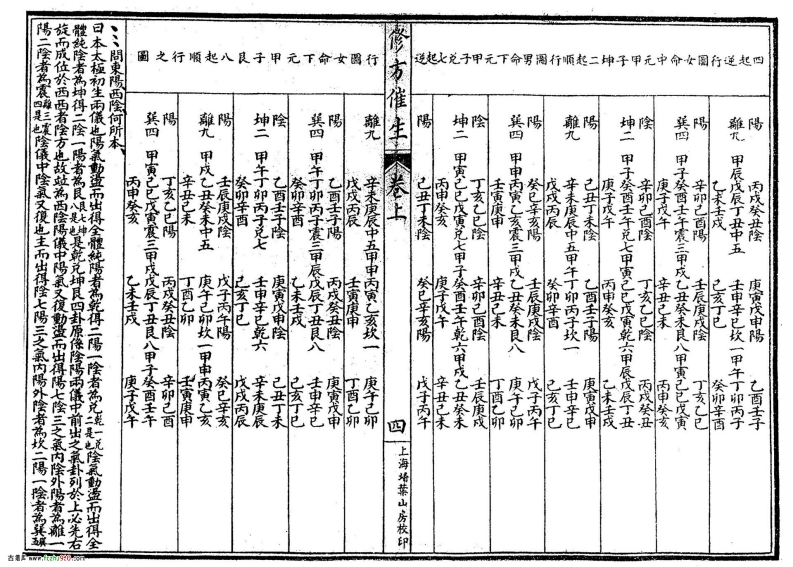 四起逆行圖女命中元甲子坤二起順行圖男命下元甲子兌七起逆
陽 丙戌癸丑陰 庚寅戊申陽 乙酉壬子
離九 甲辰戊辰丁丑中五 壬申辛巳坎一甲午丁卯丙子
乙未壬戌 己亥丁巳 癸卯辛酉
陽 辛卯己酉陽 壬辰庚戌陰 丁亥乙巳
巽四 甲子癸酉壬午震三甲戌乙丑癸未艮八甲寅己巳戊寅
庚子戊午 辛丑己未 丙申癸亥
陰 辛卯己酉陰 丁亥乙巳陰 丙戌癸丑
坤二 甲子癸酉壬午兌七甲寅己巳戊寅乾六甲辰戊辰丁丑
庚子戊午 丙申癸亥 乙未壬戌
陽 己丑丁未陰 乙酉壬子陽 庚寅戊申
離九 辛未庚辰中五甲午丁卯丙子坎一 壬申辛巳
戊戌丙辰 癸卯辛酉 己亥丁巳
陽 癸巳辛亥陽 壬辰庚戌陰 辛卯己酉
巽四 甲申丙寅乙亥震三甲戌乙丑癸未艮八甲子癸酉壬午
壬寅庚申 辛丑己未 庚子戊午
陰 丁亥乙巳陰 辛卯己酉陰 壬辰庚戌
坤二 甲寅己巳戊寅兌七甲子癸酉壬午乾六甲戌乙丑癸未
丙申癸亥 庚子戊午 辛丑己未
陽 己丑丁未陰 癸巳辛亥陽 戊子丙午
修方催生 卷上 四 上海埽葉山房校印
行圖女命下元甲子艮八起順行之圖
離九 辛未庚辰中五甲申丙寅乙亥坎一 庚午己卯
戊戌丙辰 壬寅庚申 丁酉乙卯
陽 乙酉壬子陽 丙戌癸丑陰 庚寅戊申
巽四 甲午丁卯丙子震三甲辰戊辰丁丑艮八 壬申辛巳
癸卯辛酉 乙未壬戌 己亥丁巳
陰 乙酉壬子陰 庚寅戊申陰 己丑丁未
坤二 甲午丁卯丙子兌七 壬申辛巳乾六 辛未庚辰
癸卯辛酉 己亥丁巳 戊戌丙辰
陽 壬辰庚戌陰 戊子丙午陽 癸巳辛亥
離九 甲戌乙丑癸未中五 庚午己卯坎一甲申丙寅乙亥
辛丑己未 丁酉乙卯 壬寅庚申
陽 丁亥乙巳陽 丙戌癸丑陰 辛卯己酉
巽四 甲寅己巳戊寅震三甲辰戊辰丁丑艮八甲子癸酉壬午
丙申癸亥 乙未壬戌 庚子戊午
問東陽西陰何所本
曰本太極初生兩儀也陽氣動盪而出得全體純陽者為乾得二陽一陰者為兌乾一兌二是也陰氣動盪而出得全
體純陰者為坤得二陰一陽者為艮坤艮八是也是乾兌坤艮四卦原係陰陽兩儀中前出之氣卦列於上必先右
旋而成位於西西者陰方也故站為西陰陽儀中陽氣又復動盪而出得陽七陰三之氣內陰外陽者為離一
陽二陰者為震離三震四是也陰儀中陰氣又復也主而出得陰七陽三之氣內陽外陰者為坎二陽一陰者為巽